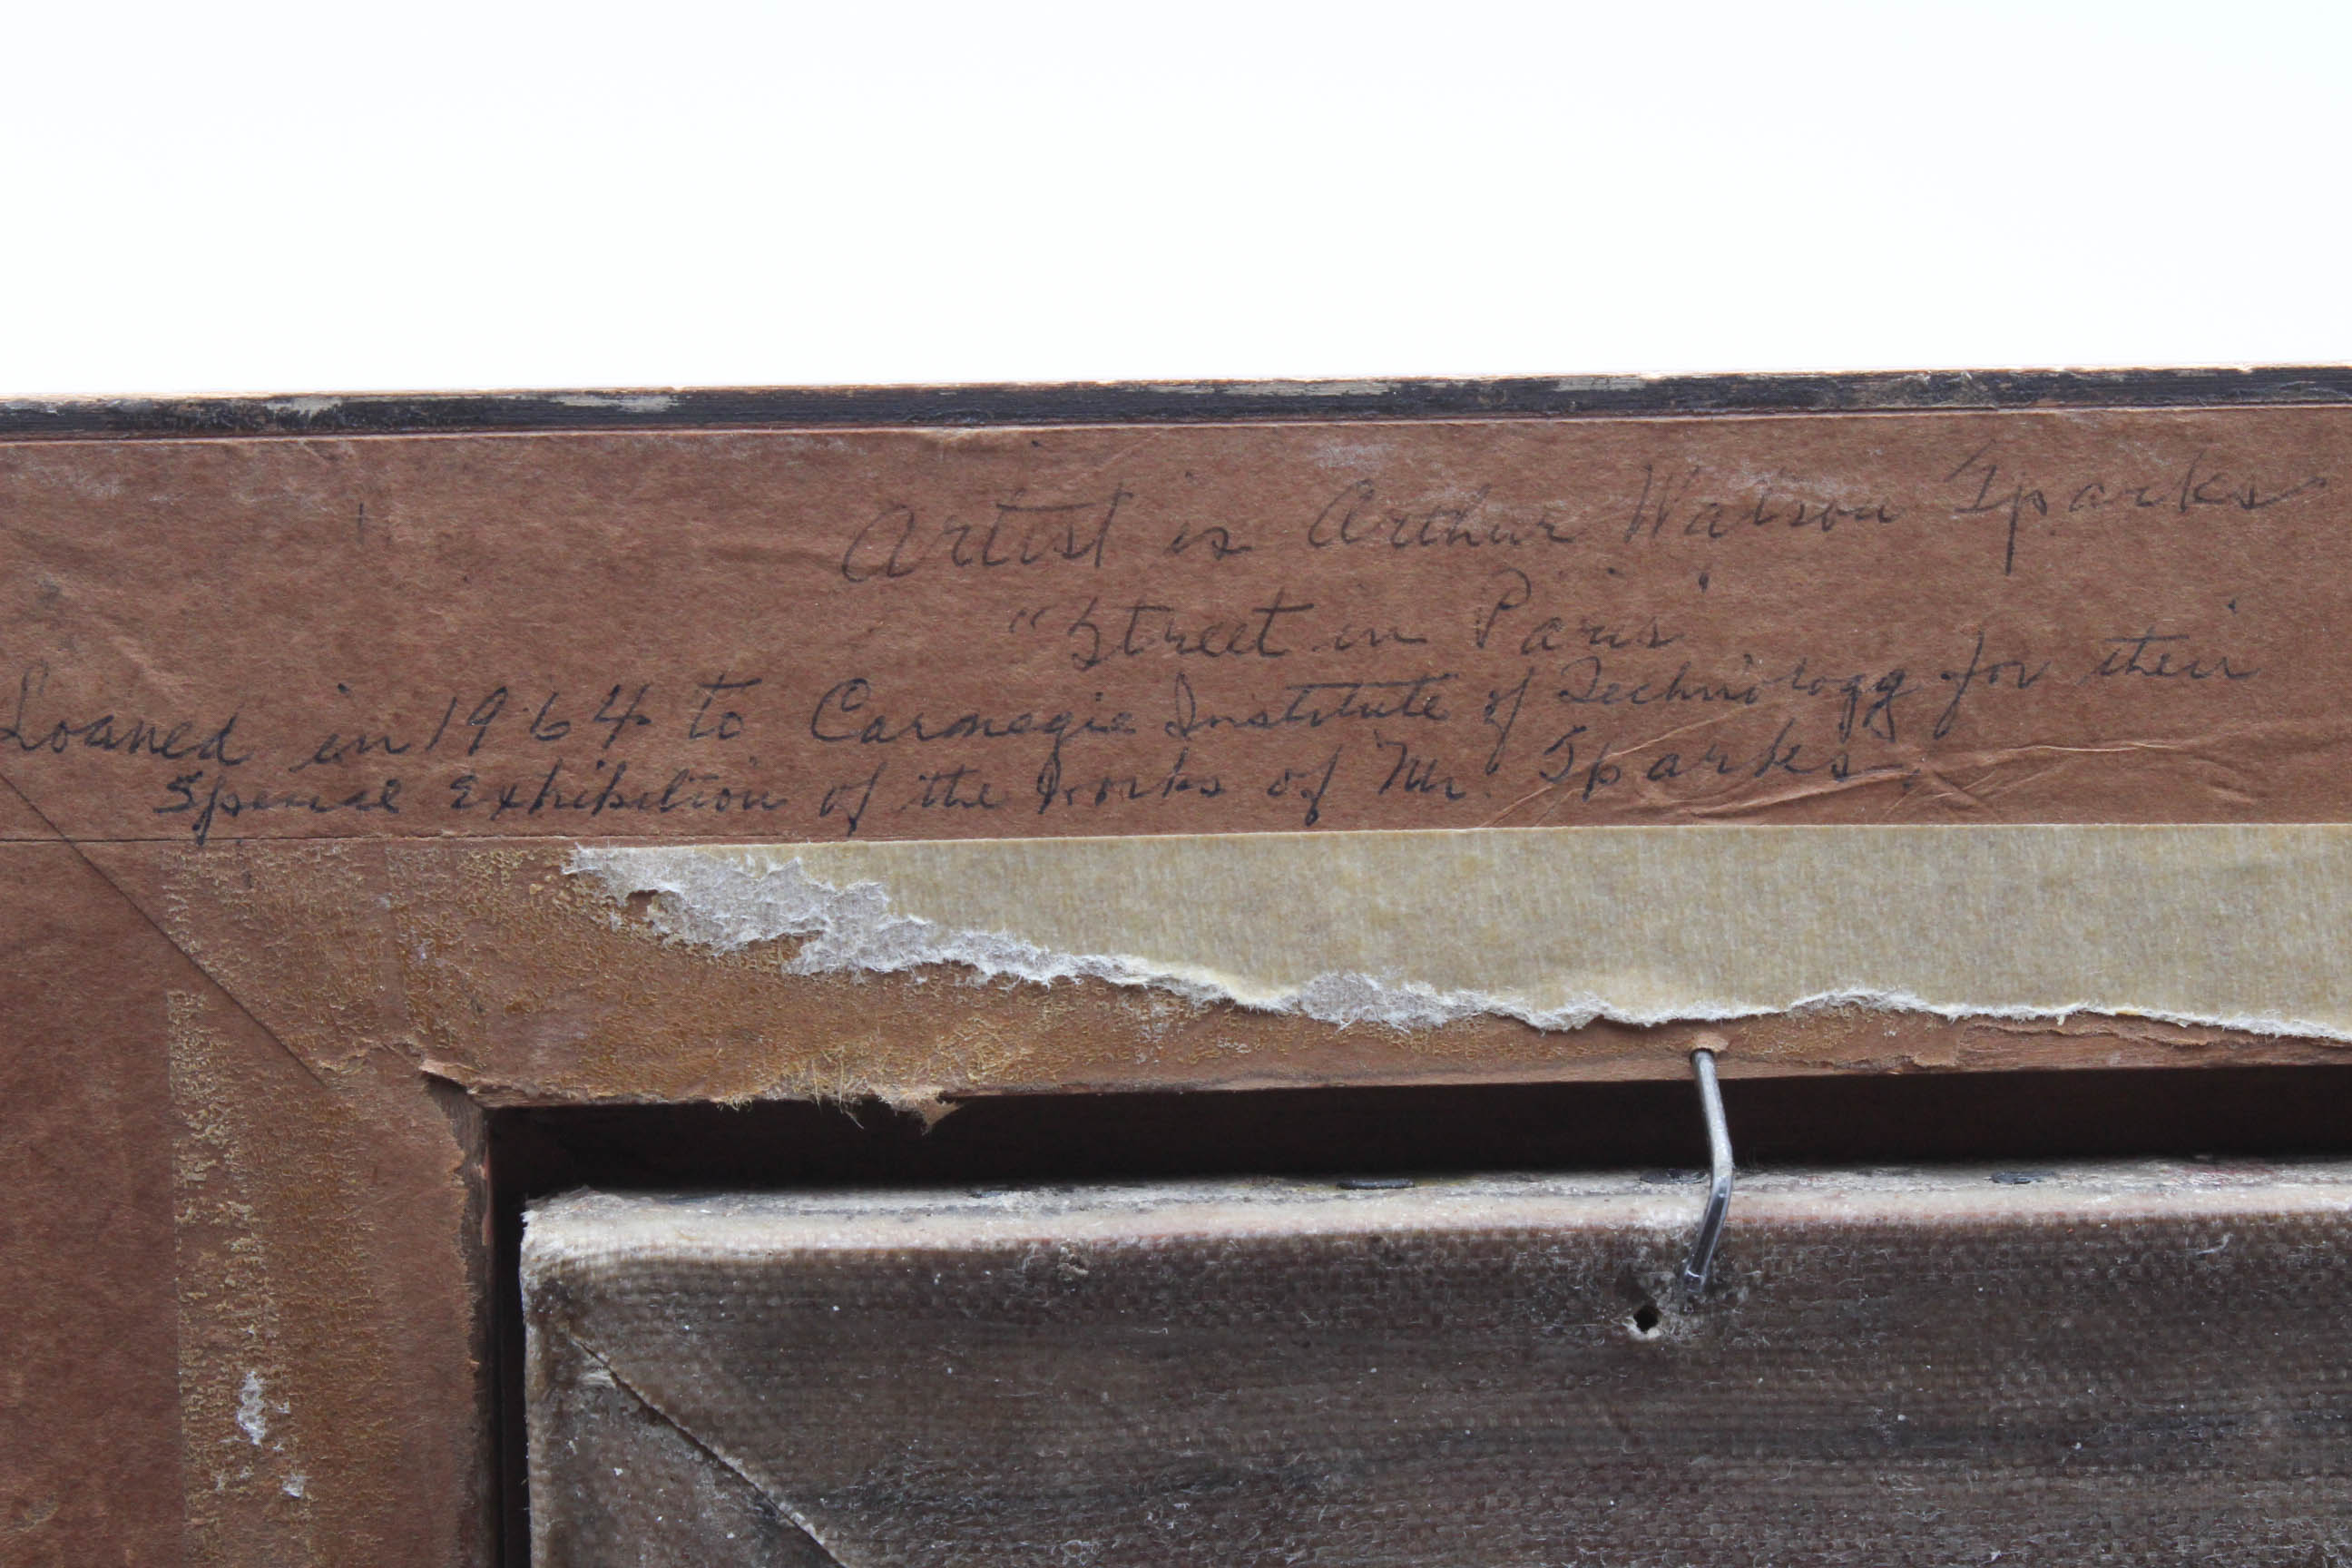 Artist is Arthur Watson Sparks
"Street in Paris"
Loaned in 1964 to Carnegie Institute of Technology for their
Special Exhibition of the works of Mr. Sparks.